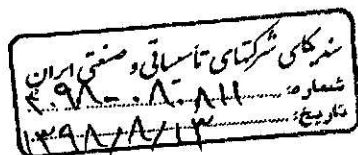 سندیکای شرکتهای تأسیساتی و صنعتی ایران
شماره: ۳۰۹۸-۰۸۰۸۱۱
تاریخ: ۱۳۹۸/۸/۱۳